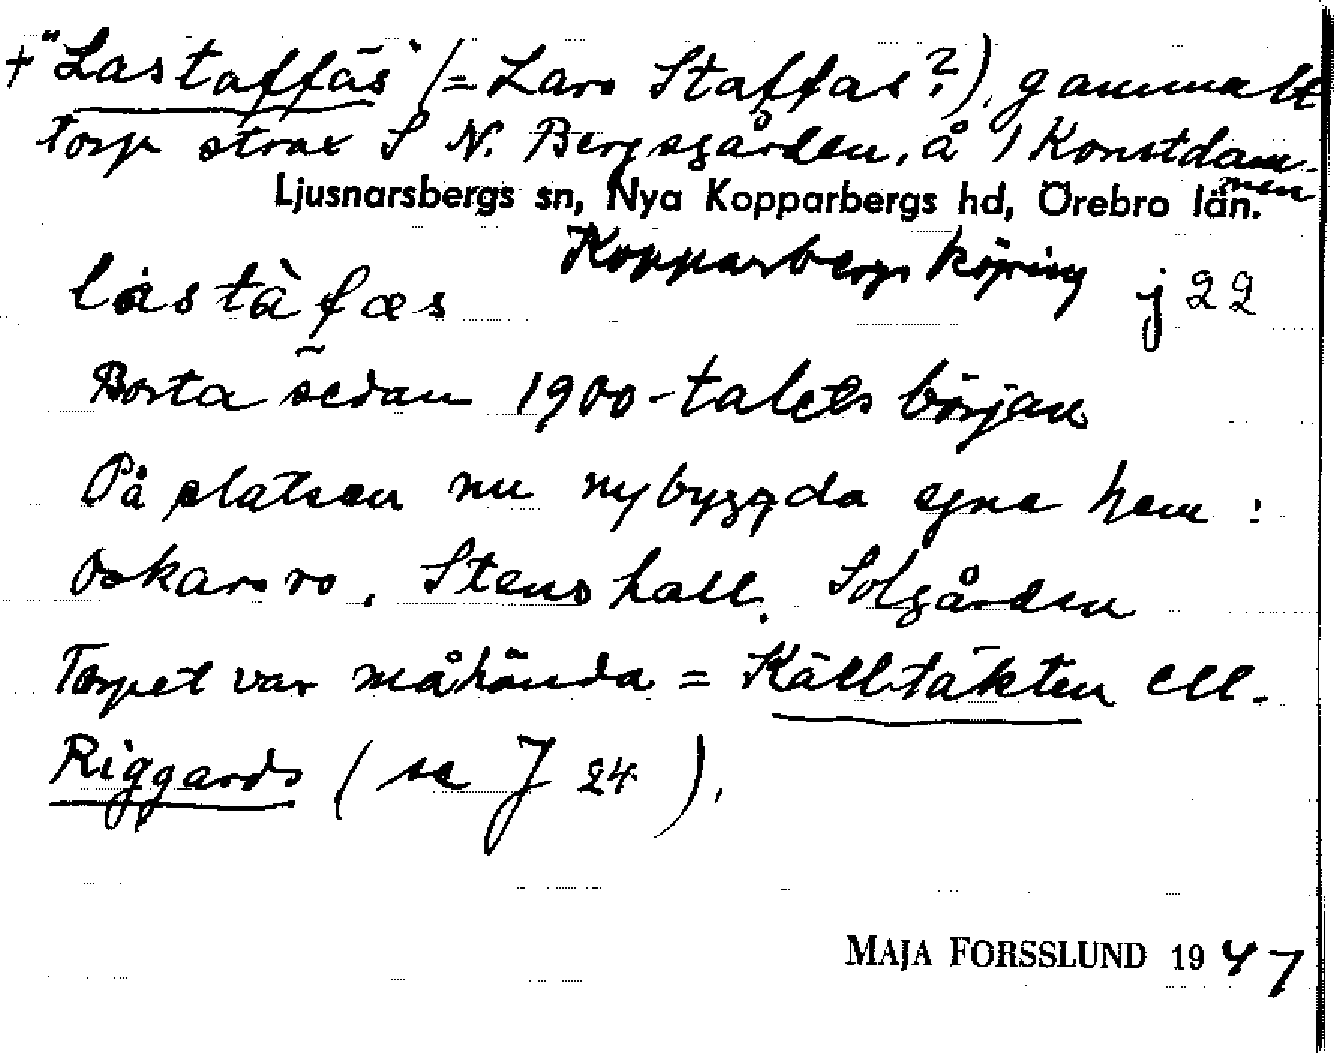 + "Lastaffäs" (= Lars Staffas?), gammalt
torp strax S N. Bergsgården, å / Konstdam-
men
Ljusnarsbergs sn, Nya Kopparbergs hd, Örebro län.
Kopparbergs köping j 22
lástàfæs
Borta sedan 1900-talets början
På platsen nu nybyggda egna hem:
Oskarsro, Stenshall, Solgården
Torpet var måhända = Källtäkten ell.
Riggards (se J 24).
MAJA FORSSLUND 1947